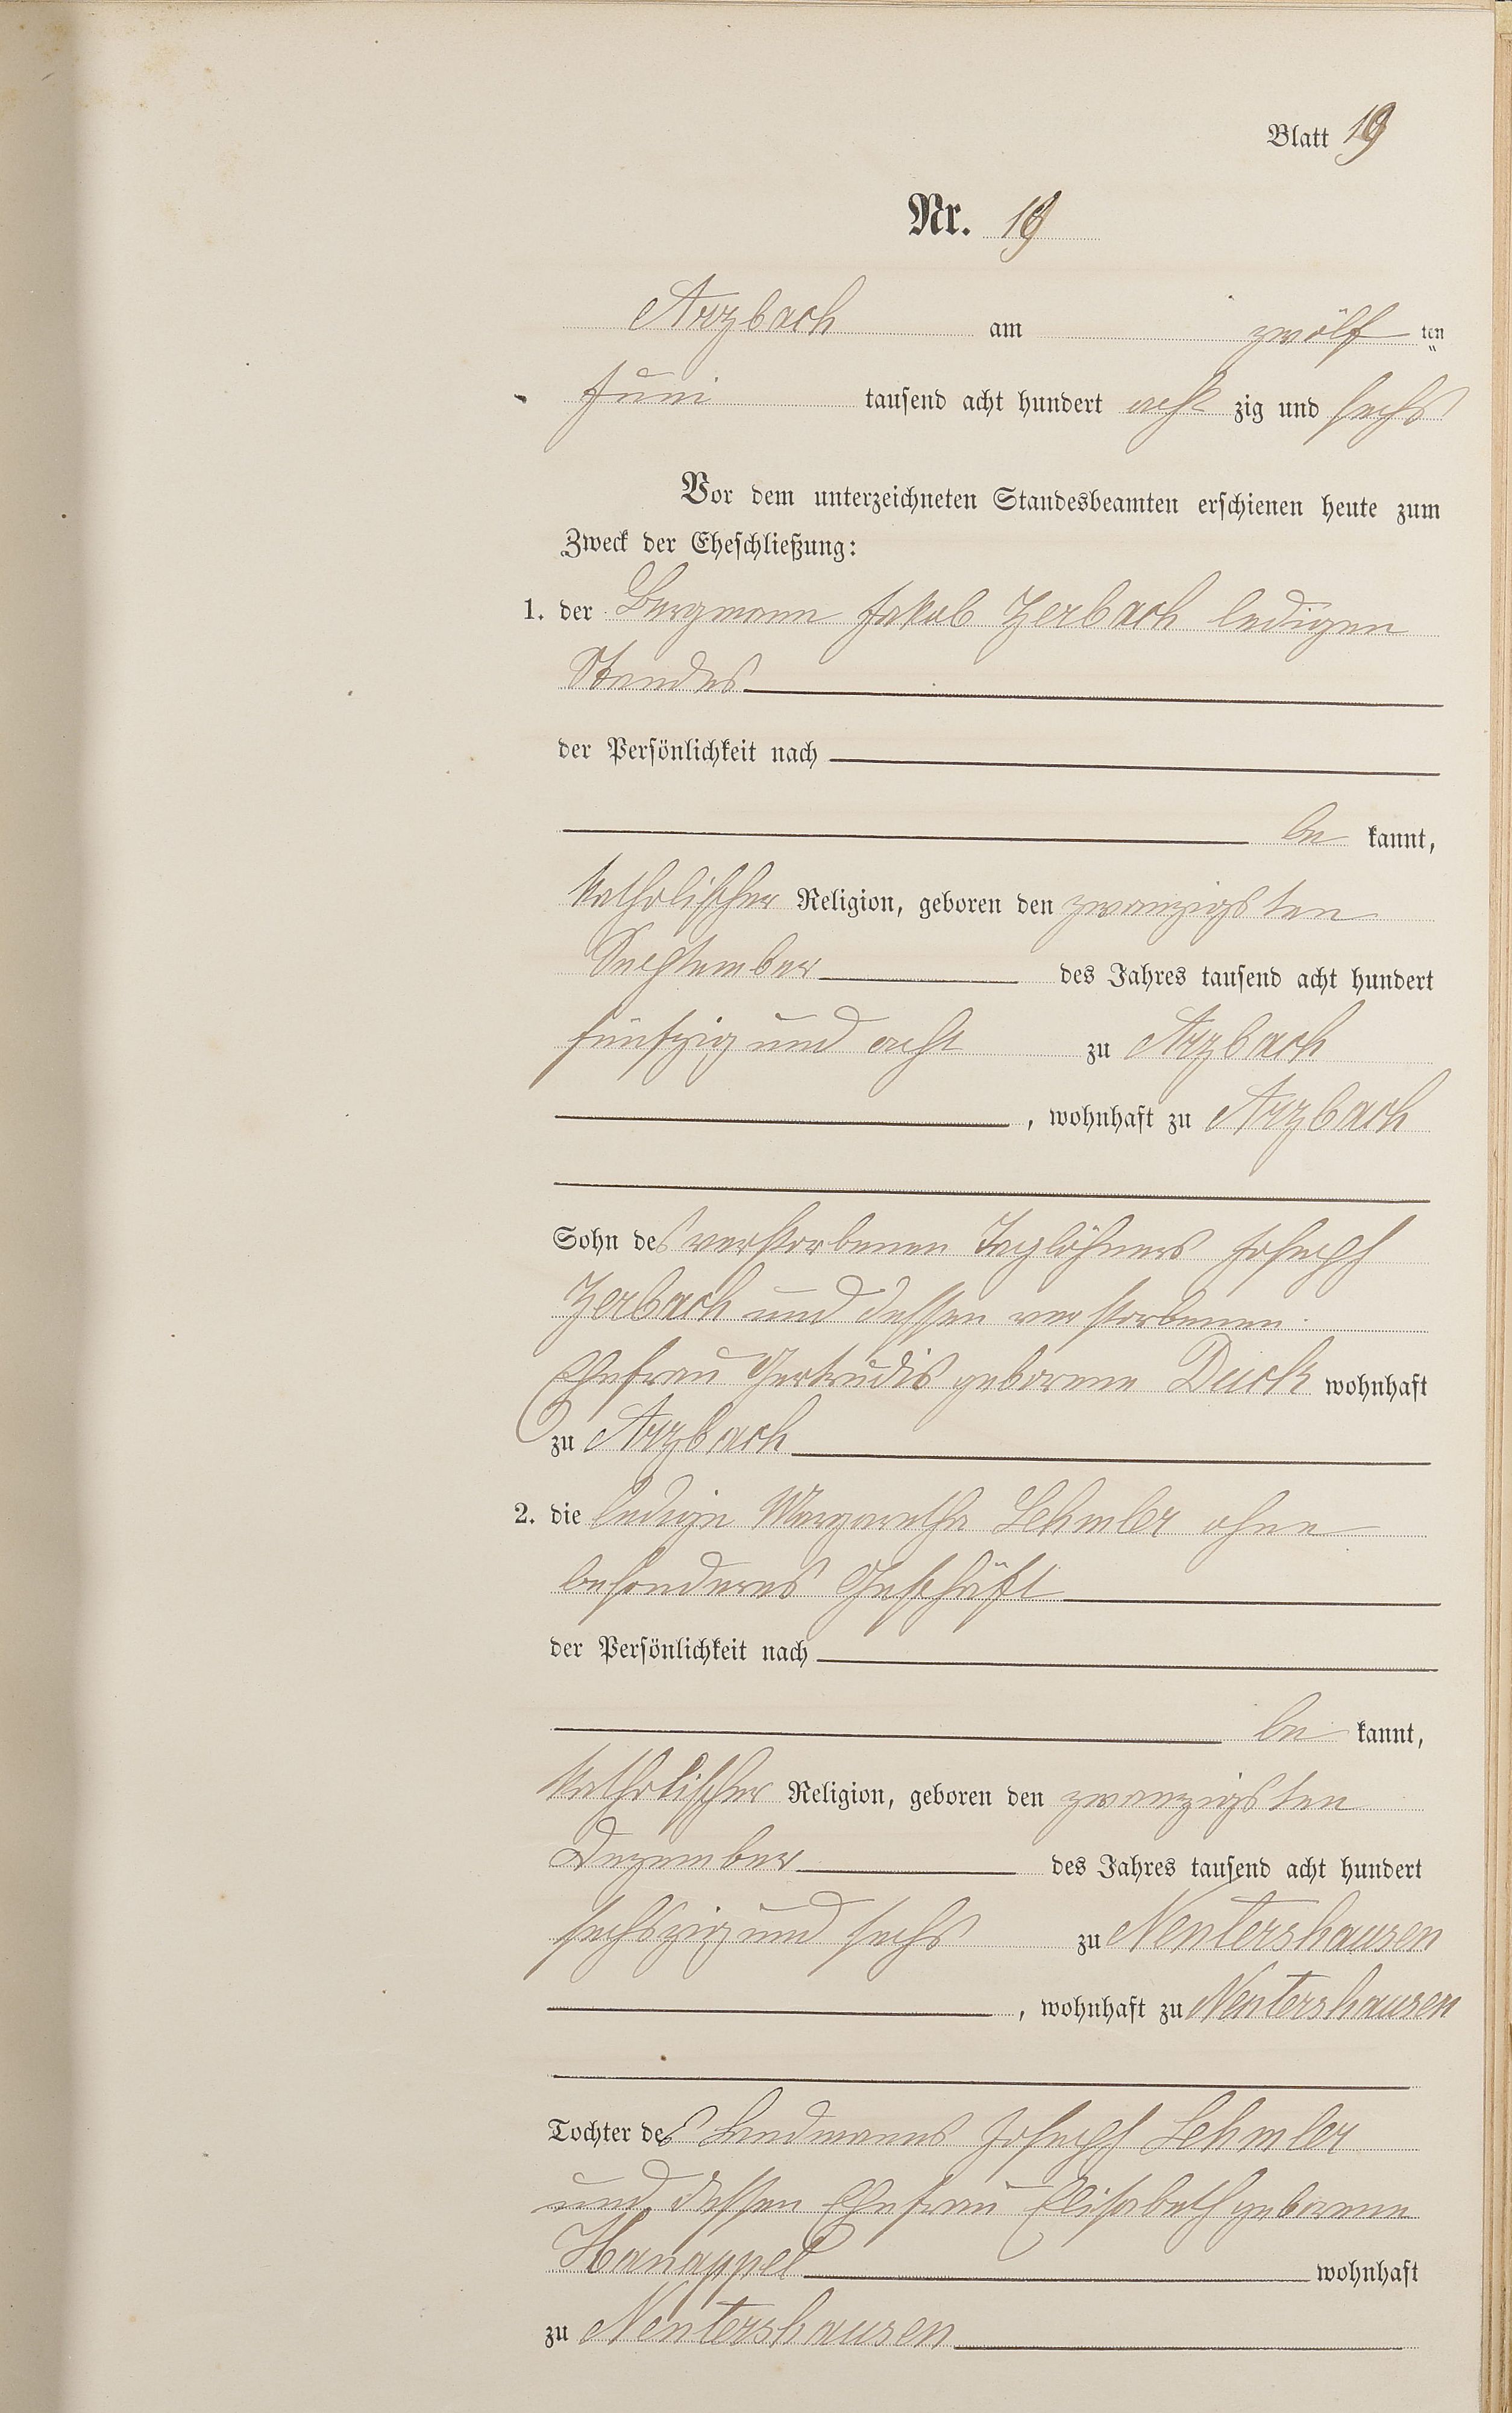 Blatt 19
Nr. 19
Arzbach am zwölf ten
Juni tausend acht hundert acht zig und sechs
Vor dem unterzeichneten Standesbeamten erschienen heute zum
Zweck der Eheschließung:
1. der Bergmann Jakob Zerbach ledigen
Standes
der Persönlichkeit nach
be kannt,
katholischer Religion, geboren den zwanzigsten
September des Jahres tausend acht hundert
fünfzig und acht zu Arzbach
, wohnhaft zu Arzbach
Sohn des verstorbenen Taglöhners Joseph
Zerbach und dessen verstorbenen
Ehefrau Gertrudis geborene Duck wohnhaft
zu Arzbach
2. die ledige Margaretha Lehmler ohne
besonderes Geschäft
der Persönlichkeit nach
be kannt,
katholischer Religion, geboren den zwanzigsten
Dezember des Jahres tausend acht hundert
sechszig und sechs zu Nentershausen
, wohnhaft zu Nentershausen
Tochter des Landmanns Joseph Lehmler
und dessen Ehefrau Elisabeth geborene
Hanappel wohnhaft
zu Nentershausen